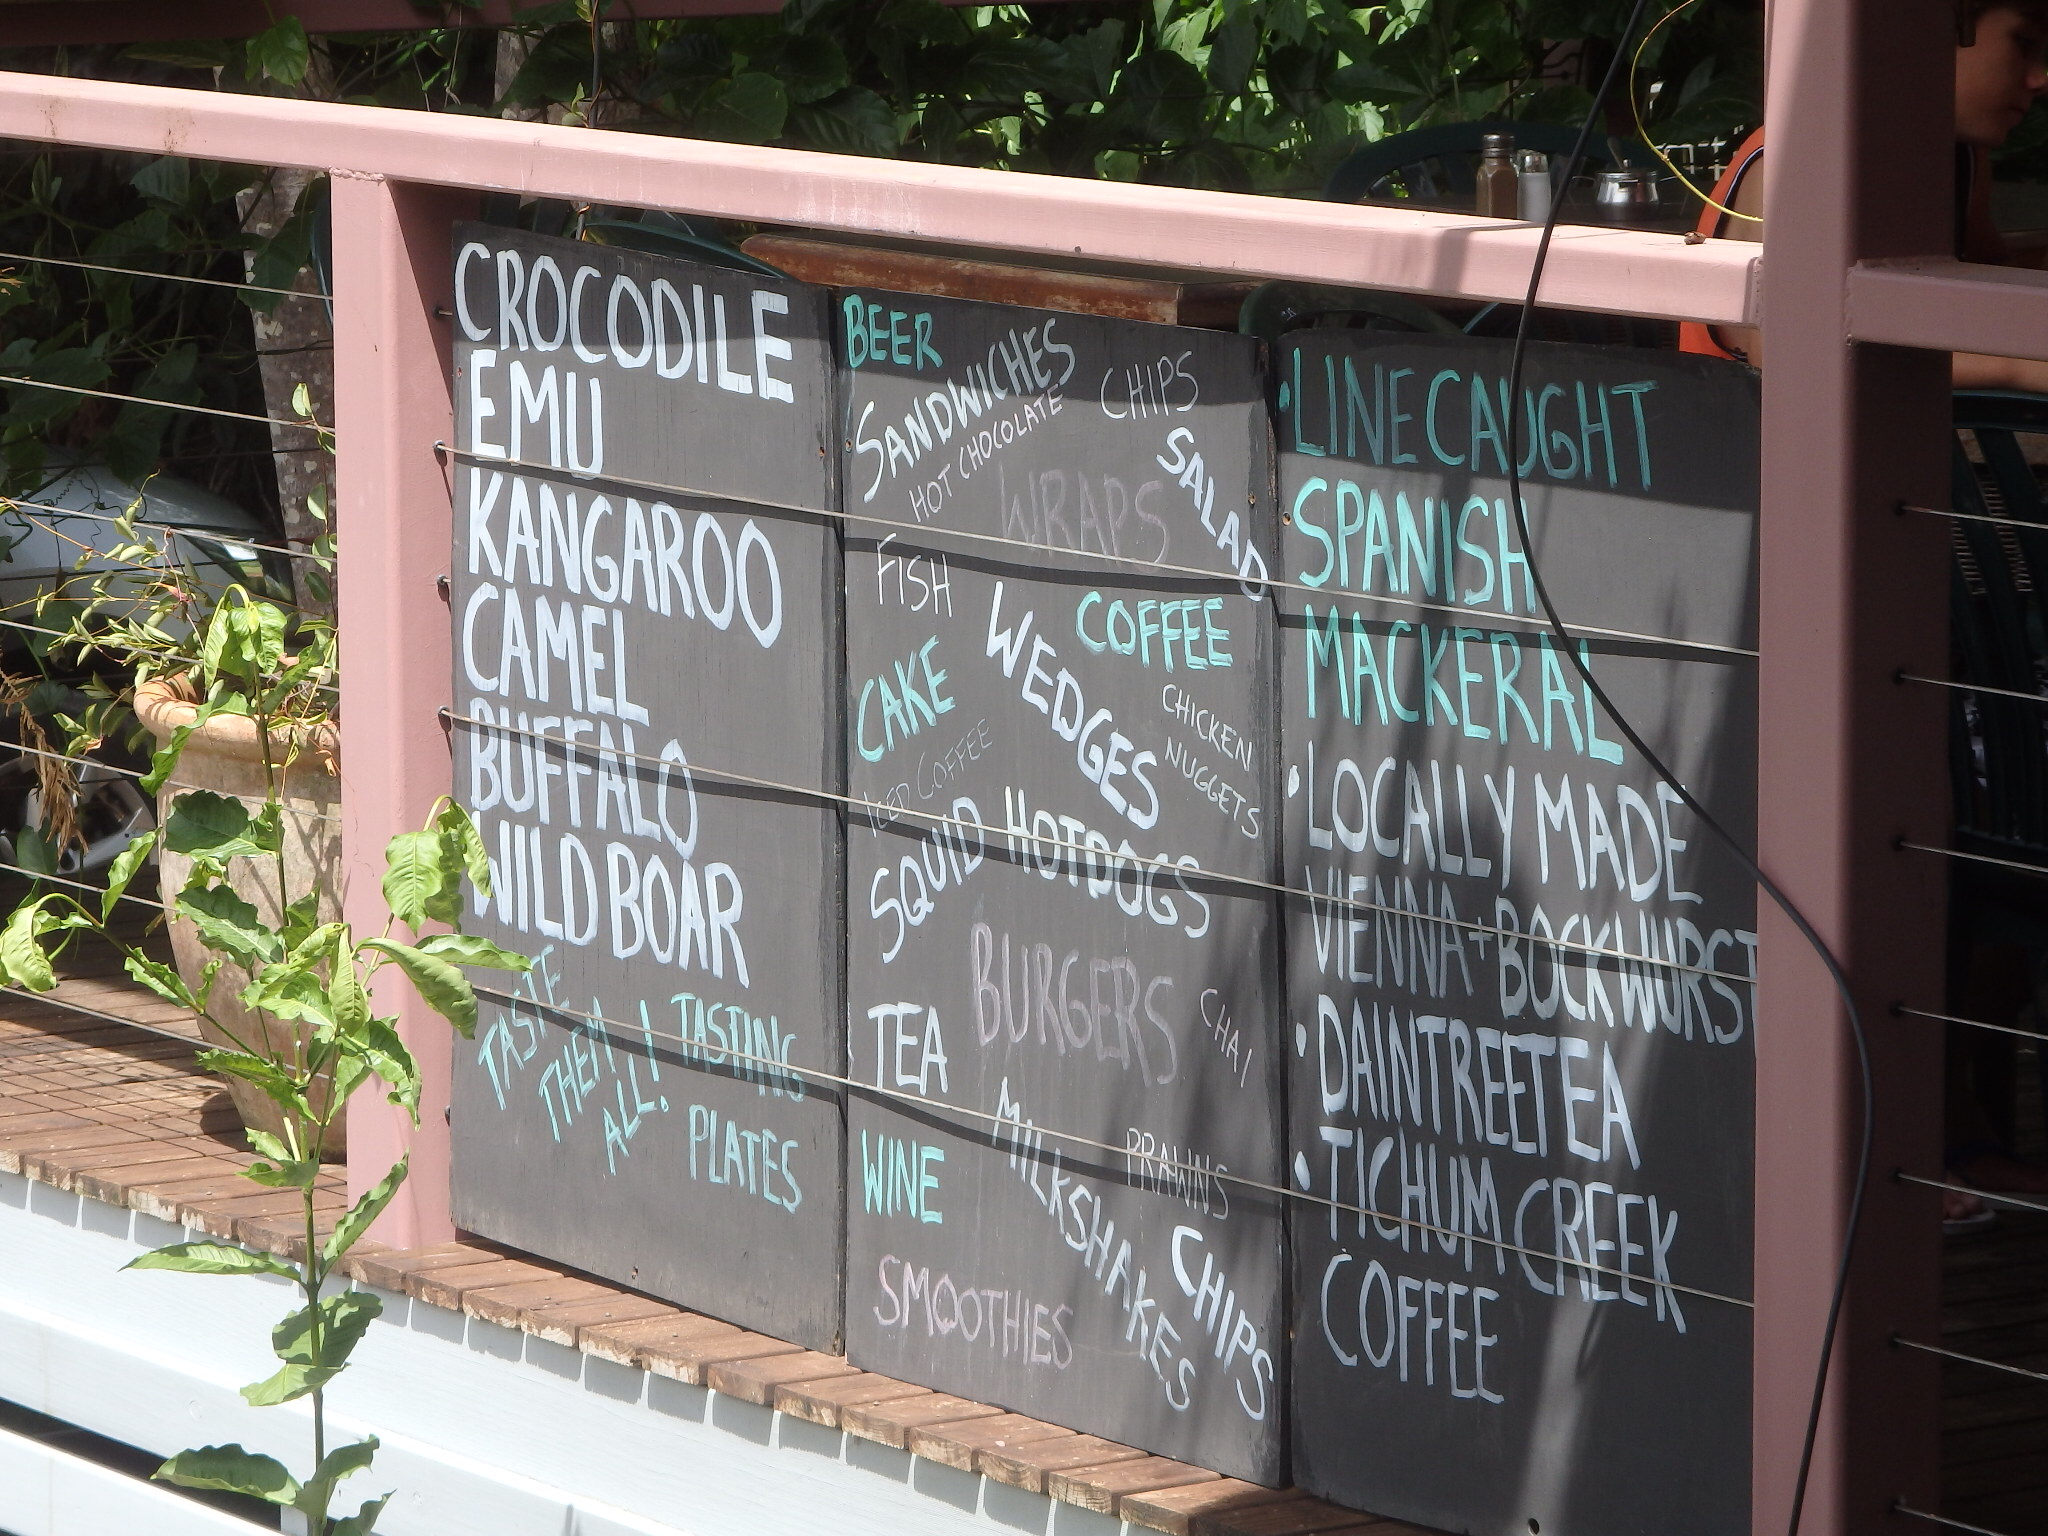 CROCODILE
EMU
KANGAROO
CAMEL
BUFFALO
WILD BOAR
TASTE
THEM
ALL!
TASTING
PLATES
BEER
SANDWICHES
HOT CHOCOLATE
CHIPS
SALAD
WRAPS
FISH
WEDGES
COFFEE
CAKE
CHICKEN
NUGGETS
ICED COFFEE
SQUID
HOTDOGS
BURGERS
CHAI
TEA
MILKSHAKES
PRAWNS
WINE
CHIPS
SMOOTHIES
• LINE CAUGHT
SPANISH
MACKERAL
• LOCALLY MADE
VIENNA + BOCKWURST
• DAINTREE TEA
• TICHUM CREEK
COFFEE